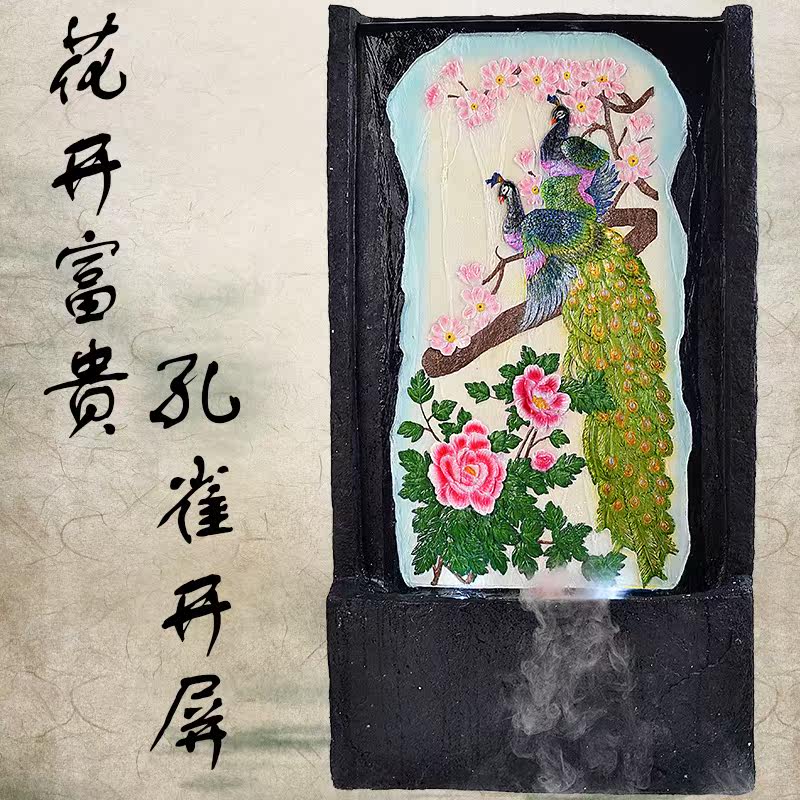 花开富貴
孔雀开屏